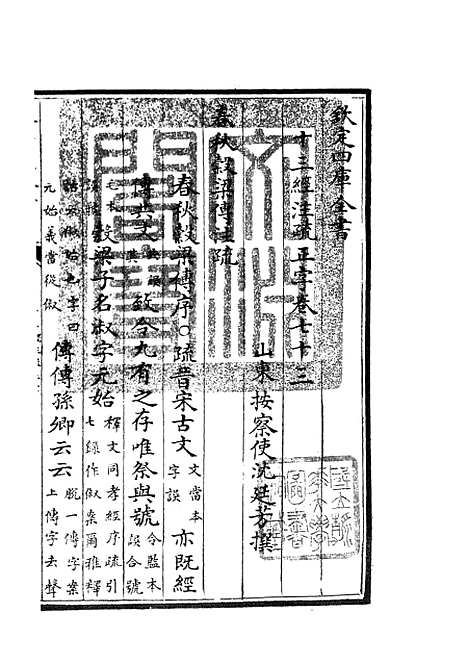 欽定四庫全書
十三經注疏正字卷七十三
山東按察使沈廷芳撰
春秋穀梁傳注疏
春秋穀梁傳序○疏昔宋古文文當本字誤亦既經
傳共文
毀今九有之存唯祭與號今監本誤合號
穀梁子名俶字元始釋文同孝經序疏引七錄作俶案爾雅釋
詁云俶始也字曰元始義當從俶
傳傳孫卿云云脫一傳字案上傳字去聲